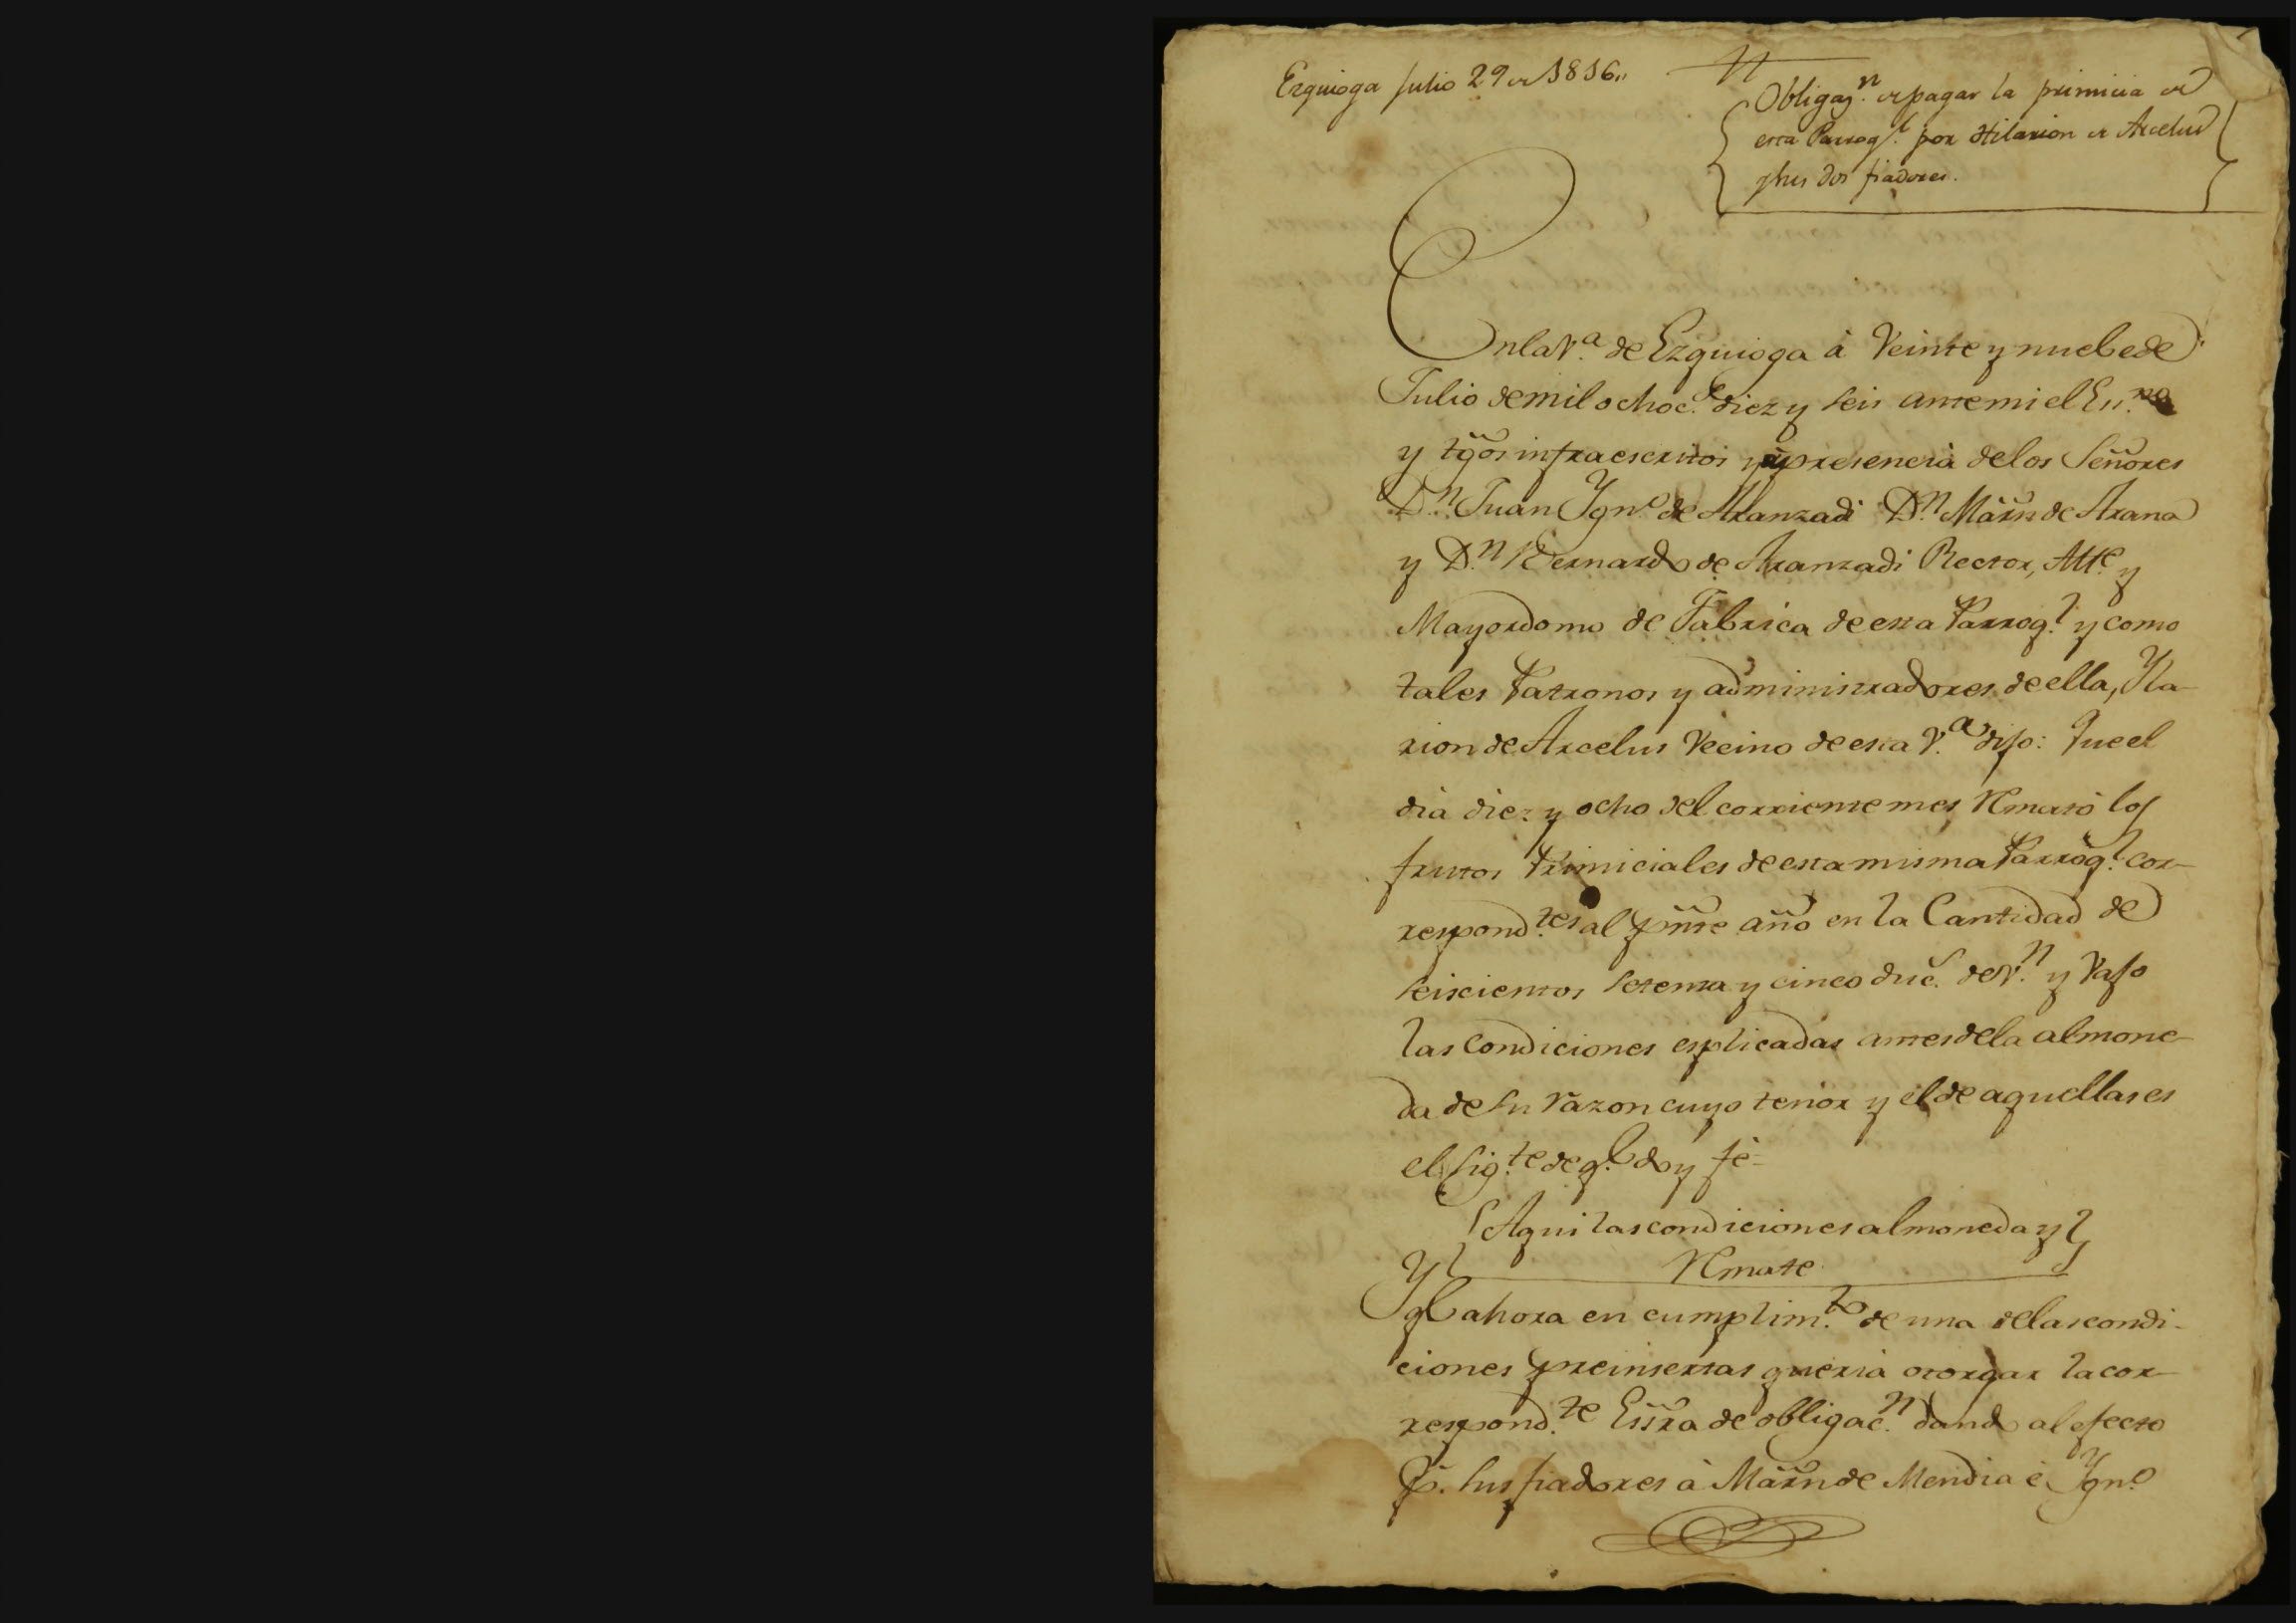 Ezquioga Julio 29 de 1816,,
Obligaz.n de pagar la primicia de
esta Parroq.l por Hilarion de Arcelus
y sus dos fiadores.
En la V.a de Ezquioga à Veinte y nuebe de
Julio de mil ochoc.s diez y seis ante mi el Ess.no
y tg̃os infraescritos y à presencia de los Señores
D.n Juan Ygn.o de Aranzadi D.n Mãrn de Arana
y D.n Bernardo de Aranzadi Rector, Alle y
Mayordomo de Fabrica de esta Parroq.l y como
tales Patronos y administradores de ella, Yla-
rion de Arcelus Vecino de esta V.a dijo: Que el
dia diez y ocho del corriente mes Rematò los
frutos Primiciales de esta misma Parroq.l cor-
respond.tes al pñte año en la Cantidad de
seiscientos setenta y cinco duc.s de V.n y Vajo
las condiciones esplicadas antes de la almone-
da de su razon cuyo tenor y el de aquellas es
el sig.te de q.e doy fè=
Aqui las condiciones almoneda y
Remate
Y q.e ahora en cumplim.to de una de las condi-
ciones preinsertas queria otorgar la cor-
respond.te Essra de obligac.n dando al efecto
p.r sus fiadores à Mãrn de Mendia è Ygn.o